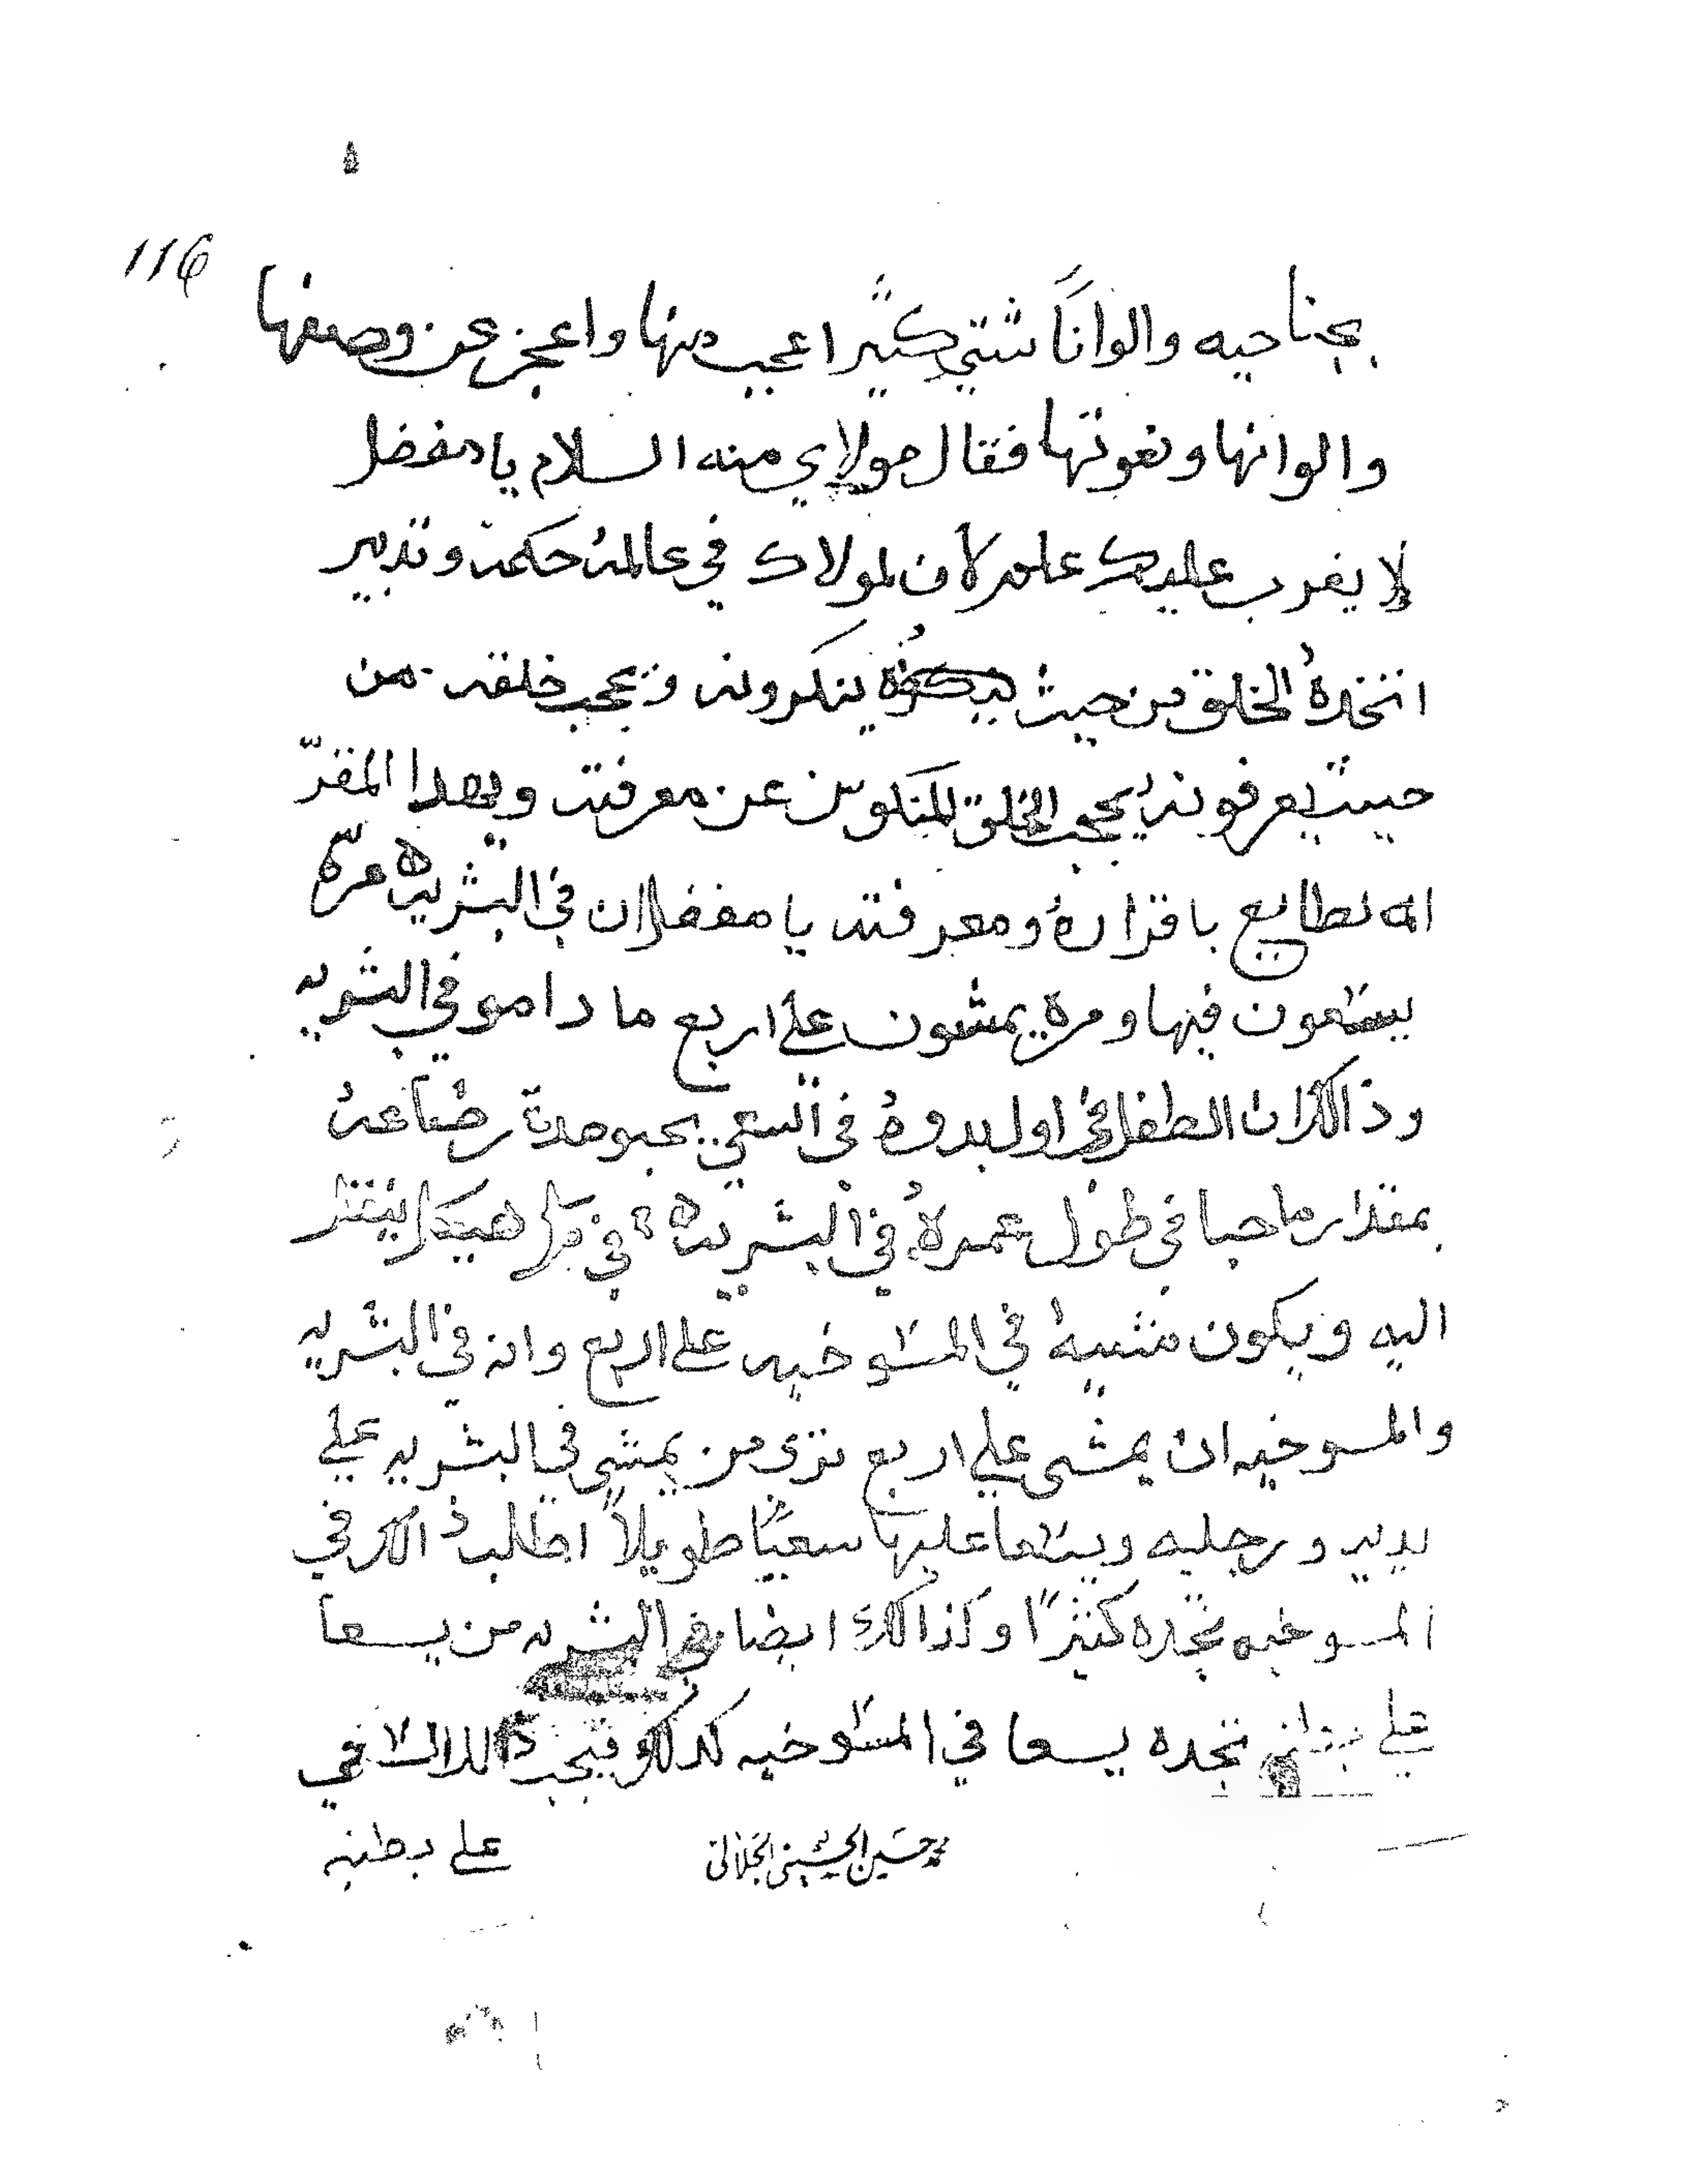 116
بجناحيه والواناً شتي كثيرا عجب منها واعجز عن وصفها
والوانها ونعوتها فقال مولاي منه السلام يا مفضل
لا يغرب عليك علم لان لمولاك في عالمه حكمه وتدبير
اتخذهُ الخلق من حيث ينكرونه و يحجب خلقه من
حيث يعرفونه يحجب الخلق المنكوس عن معرفته وبهدا المقرّ
له تطايع باقرارهُ ومعرفته يا مفضل ان في البشريه مرّة
يسعون فيها ومره يمشون علي اربع ما دامو في البشريه
وذالك ان الطفل في اول بدوهُ في السعي يحبو مدة رضاعهُ
بمقدار ما حبا في طول عمرهُ في البشريه في كل هيكل ينتقل
اليه ويكون مشيهُ في المسوخيه علي اربع وانه في البشريه
والمسوخيه ان يمشي علي اربع تري من يمشي في البشريه علي
يديه ورجليه ويسعا عليها سعياً طويلاً اطلب ذالك في
المسوخيه تجده كثيرًا وكذالك ايضا في البشريه من يسعا
علي بطنه تجده يسعا في المسوخيه كدلك
علي بطنه
محمد حسين الحسيني الجلالي